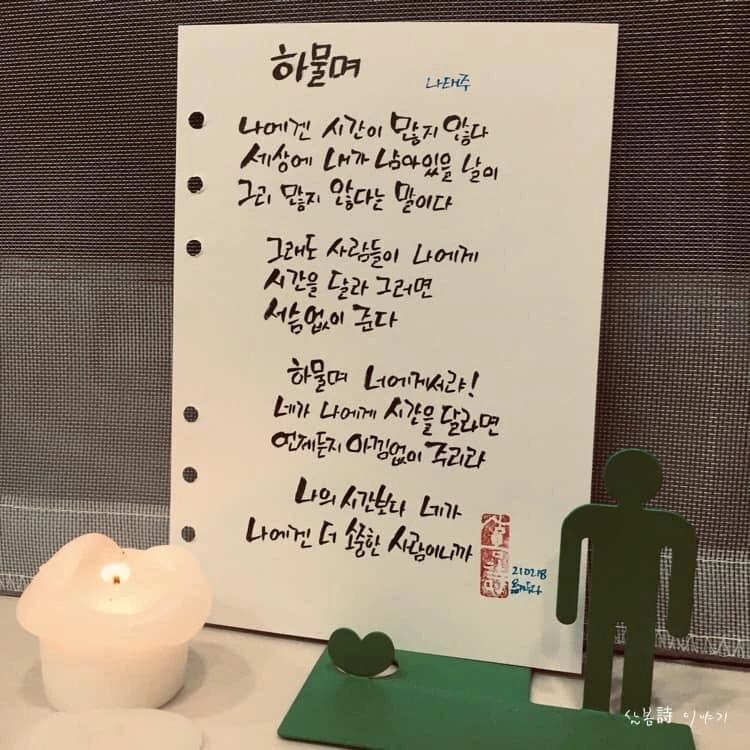 하물며
나태주
나에겐 시간이 많지 않다
세상에 내가 남아있을 날이
그리 많지 않다는 말이다
그래도 사람들이 나에게
시간을 달라 그러면
서슴없이 준다
하물며 너에게서랴!
네가 나에게 시간을 달라면
언제든지 아낌없이 주리라
나의 시간보다 네가
나에겐 더 소중한 사람이니까
210218
詩 이야기